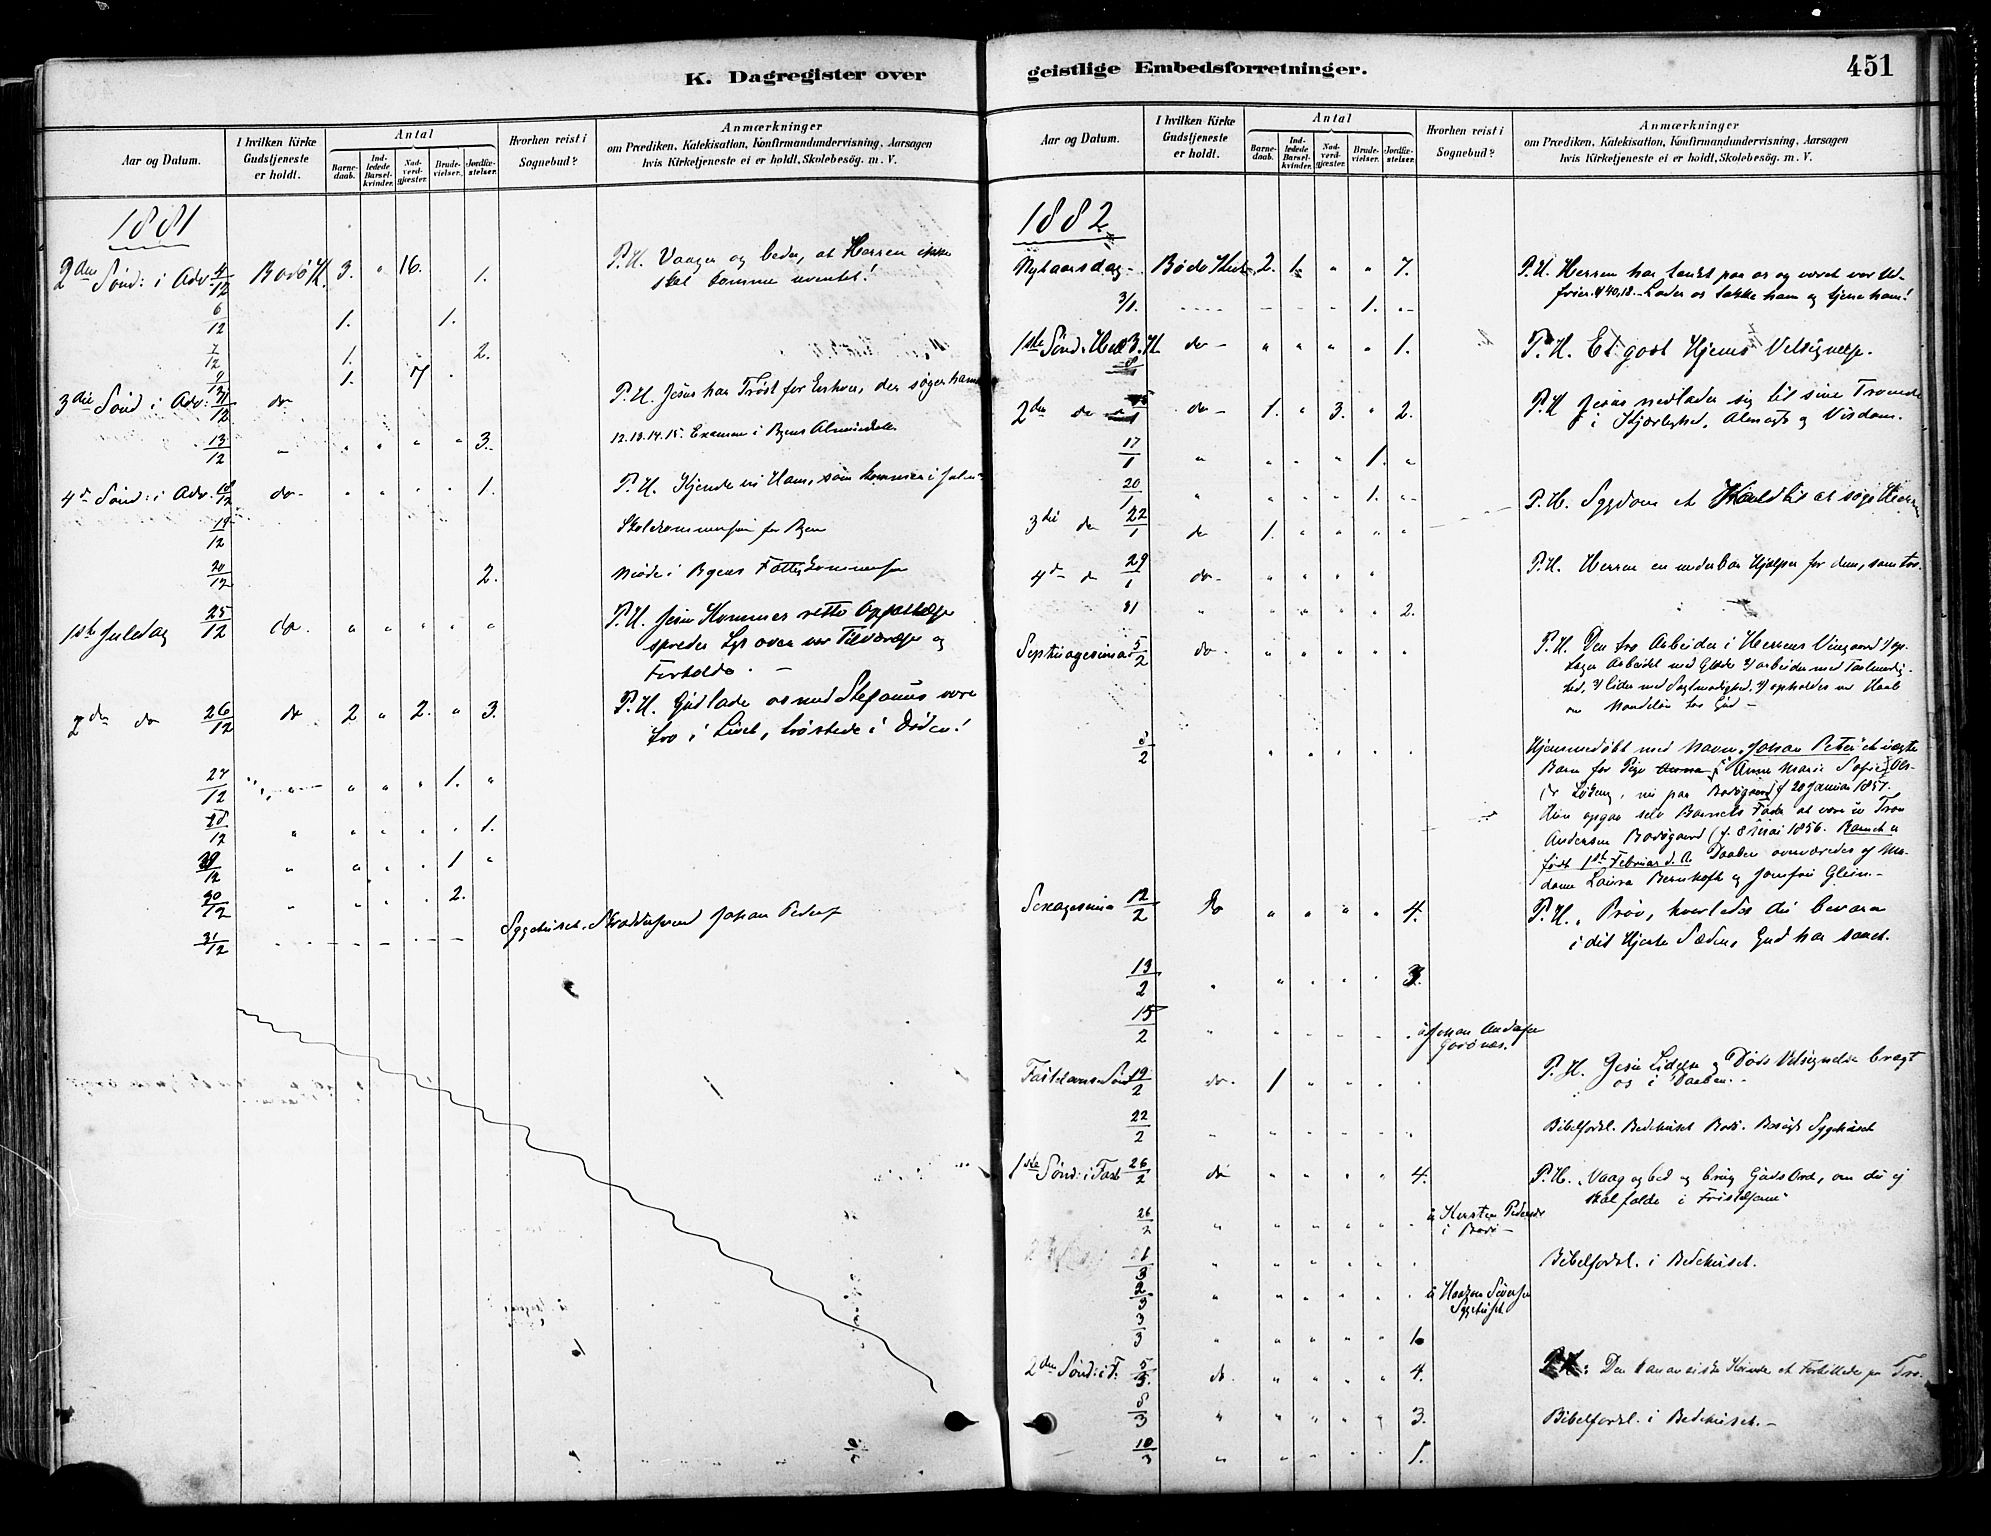 K. Dagregister over
Aar og Datum.
I hvilken Kirke Gudstjeneste er holdt.
Antal
Barne-daab.
Ind-ledede Barsel-kvinder.
Nad-verd-gjæster.
Brude-vielser.
Jordfæ-stelser.
Hvorhen reist i Sognebud?
Anmærkninger
om Prædiken, Katekisation, Konfirmandundervisning, Aarsagen
hvis Kirketjeneste ei er holdt, Skolebesøg. m. V.
1881
2den Sønd: i Adv. 4/12 Bodø H. 3. " 16. 1. P. H. Vaager og beder, at Herren ikke
skal komme uventet!
6/12 1. 1.
7/12 1. 2.
9/12 1. 7
3die Sønd i Adv: 11/12 do P. H. Jesus har Trøst for Enhver, der søger ham
13/12 " " " " " 3. 12.13.14.15. Examen i Byens Almueskole.
4de Sønd: i Adv. 18/12 do. " " " " 1. P. H. Kjende vi Ham, som kommer i
19/12 Skolekommission for Byen
20/12 2. Møde i Byens Fattigkommission
1ste Juledag 25/12 do. " " " " " P. H. Jesu Kommes rette
spreder Lys over vor Tilværelse og
Forholde. -
2den do 26/12 do 2 " 2. " 3. P. H. Gud lade os med Stefanus være
tro i Livet, trøstede i Døden!
27/12 " " " " 1. "
28/12 " " " " " 1.
29/12 " " " " 1 "
30/12 " " " " 2.
31/12 Sygehuset. Johan Peders
geistlige Embedsforretninger.
451
Aar og Datum.
I hvilken Kirke Gudstjeneste er holdt.
Antal
Barne-daab.
Ind-ledede Barsel-kvinder.
Nad-verd-gjæster.
Brude-vielser.
Jordfæ-stelser.
Hvorhen reist i Sognebud?
Anmærkninger
om Prædiken, Katekisation, Konfirmandundervisning, Aarsagen
hvis Kirketjeneste ei er holdt, Skolebesøg. m. V.
1882
Nytaarsdag - Bodø 2. 1. " " 7. P. H. Herren har tænkt paa os og været vor Ud-
frier. 40,18. - Lader os takke ham og tjene ham!
3/1. 1.
1ste Sønd: 3. K. 8 do - " " " " 1. P. H. Et godt Hjems Velsignelse.
2den do 15/1 do - 1. " 3. " 2. P. H Jesus nedlader sig til sine Troende
i Kjærlighed, Almagt og Visdom.
17/1 " " " " 1. "
20/1 " " " " 1. "
3die do 22/1 do 1. " " " " P. H. Sygdom et Kald til at søge Herren
4de do 29/1 do. " " " " P. H. Herren en underbar Hjælper for dem, som tro.
31 " " " " " 2.
Septuagesima 5/2 do. " " " " " P. H. Den tro Arbeider i Herrens Viingaard 1) op-
tager Arbeidet med Glæde 2) arbeider med Taalmodig-
hed, 3) lider med Sagtmodighed, 4) opholdes ved Haab
om Naadeløn hos Gud -
8/2 " " " " " Hjemmedøbt med Navn "Johan Peter" et uægte
Barn for Pige Anna Anne Marie Sofie Ols-
dr Løding, nu paa Bodøgaard f 20 Januar 1857.
Hun opgav selv Barnets Fader at være Tron
Andersen Bodøgaard (f. 8 Mai 1856. Barnet er
født 1ste Februar d. A. Daaben overværedes af Ma-
dame Laura Bernhoft og Jomfru Glein. -
Sexagesima 12/2 Do " " " " 4. P. H. Prøv, hvorledes du bevarer
i dit Hjerte Sæden, Gud har saaet.
13/2 " " " " " 3.
15/2 " " " " " Johan Anders
Fastelavns Sønd 19/2 do. 1 " " " " P. H. Jesu Lidelse og Døds Velsignelse bragt
os i Daaben. -
22/2 " " " " " Bibelforkl. Bedehuset Bodø. Besøgt Sygehuset
1ste Sønd: i Fast 26/2 do " " " " 4. P. H. "Vaag og bed og brug Guds Ord, om du ej
skal falde i Fristelsen"
26/2 " " " " " " Kirsten Pedersdr
i Bodø -
1/3 " " " " " Bibelforkl. i Bedehuset.
2/3 " " " " " " Haagen
Sygehuset
3/3 " " " " " 1.
2den Sønd: i F. 5/3. do. " " " " 4. P. H: Den kananæiske Kvinde et Forbillede paa Tro.
8/3 " " " " " 3. Bibelforkl. i Bedehuset. -
10/3 " " " " " 1.